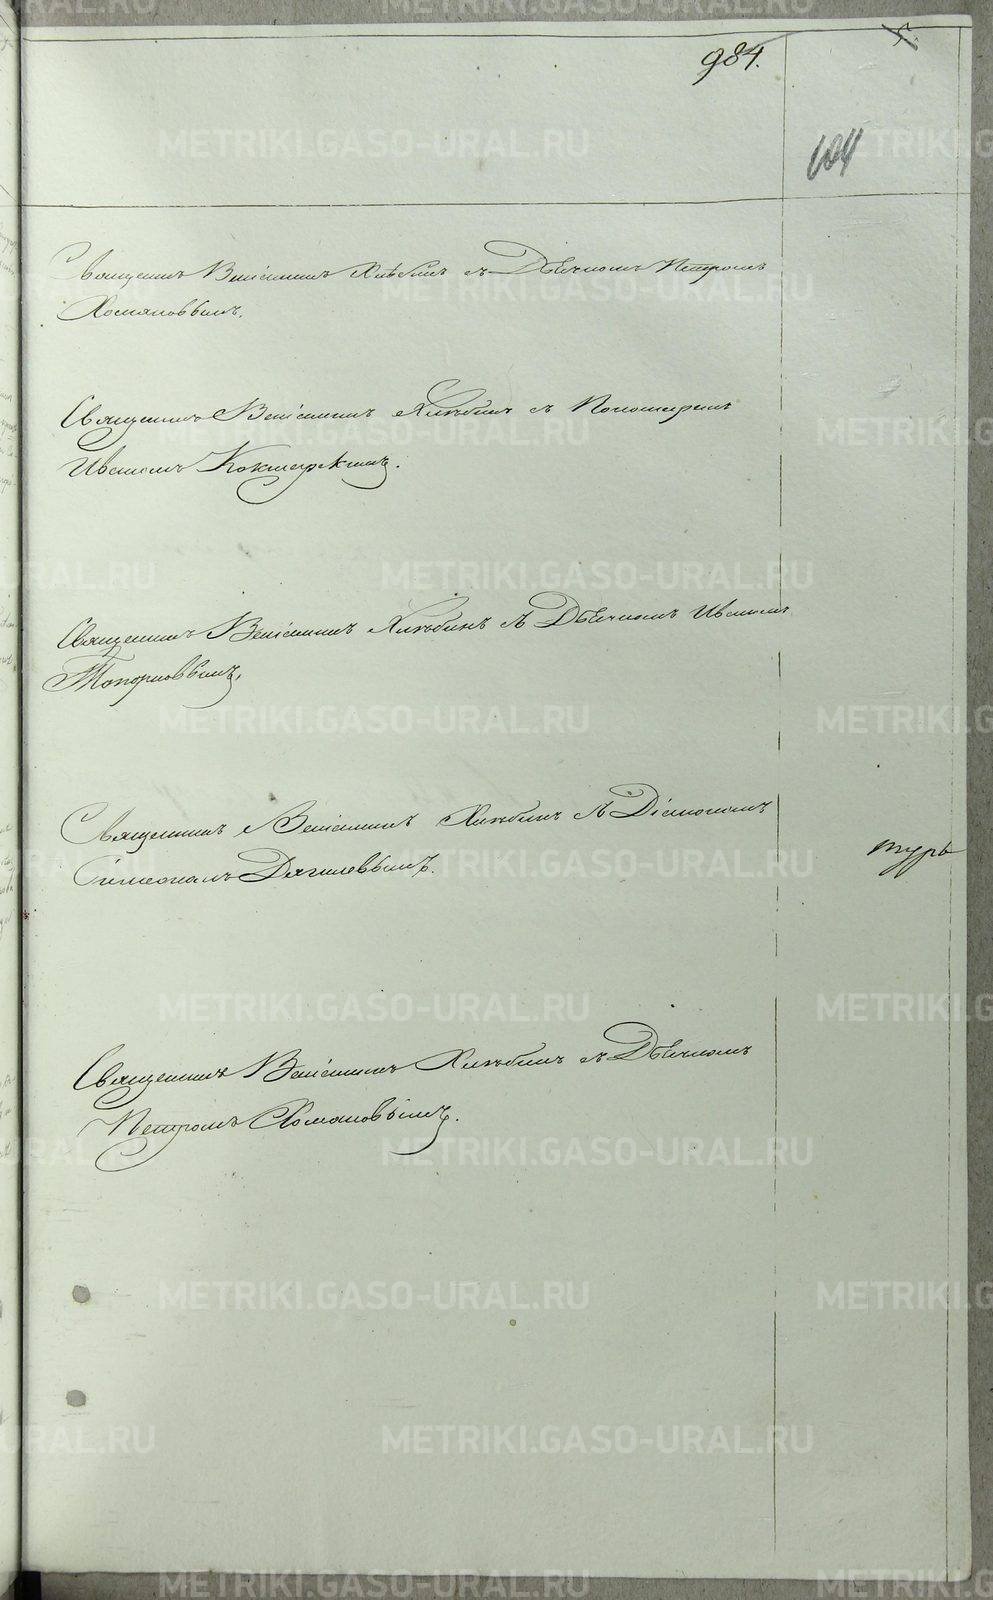 984.
104
Священникъ Веніаминъ Хлѣбинъ съ Дьячкомъ Петромъ
Хомяковымъ.
Священникъ Веніаминъ Хлѣбинъ съ Пономаремъ
Иваномъ
Священникъ Веніаминъ Хлѣбинъ съ Дьячкомъ Иваномъ
Топорковымъ.
Священникъ Веніаминъ Хлѣбинъ съ Діакономъ
Симеономъ Дягилевымъ.
туръ
Священникъ Веніаминъ Хлѣбинъ съ Дьячкомъ
Петромъ Хомяковымъ.
METRIKI.GASO-URAL.RU